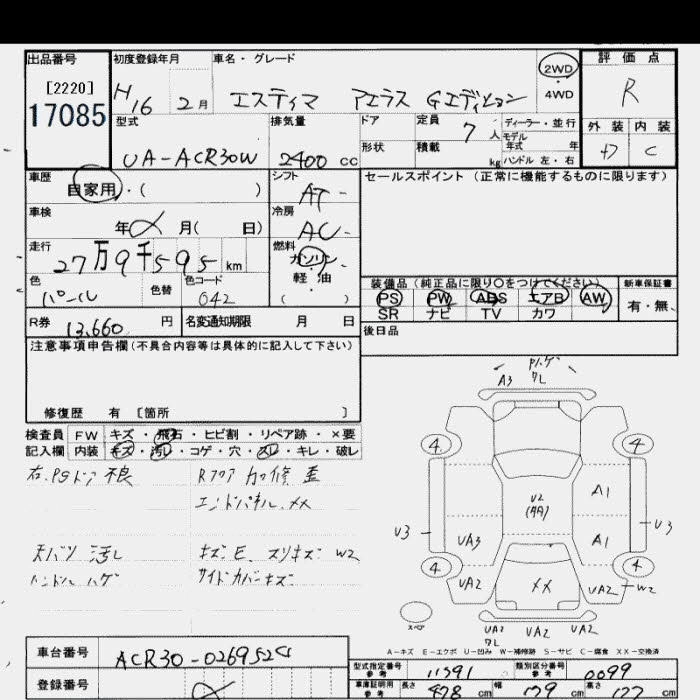 出品番号
[2220]
17085
初度登録年月
H16 2月
車名・グレード
エスティマ アエラス Gエディション
2WD
4WD
評価点
R
外装 内装
C
型式
UA-ACR30W
排気量
2400 cc
ドア
形状
定員
7人
積載
kg
ディーラー・並行
モデル
年式 年
ハンドル 左・右
車歴
自家用・( )
シフト
AT
セールスポイント (正常に機能するものに限ります)
車検
年 月( 日)
冷房
AC
走行
27万9千595 km
燃料
ガソリン・
軽・油
( )
色
パール
色替
色コード
042
装備品(純正品に限り○をつけてください)
PS PW ABS エアB AW
SR ナビ TV カワ
新車保証書
有・無
R券 13,660 円
名変通知期限 月 日
後日品
注意事項申告欄(不具合内容等は具体的に記入して下さい)
修復歴 有 [箇所 ]
検査員 FW キズ・飛石・ヒビ割・リペア跡・×要
記入欄 内装 キズ・汚レ・コゲ・穴・スレ・キレ・破レ
右.PSドア不良
Rフロア 修 歪
エンドパネル.XX
天バリ 汚し
キズ E. スリキズ W2
ハンドル ハゲ
サイドカバーキズ
A3
ハゲ
ワレ
4 4
U2
A1
U3
UA3
A1
U3
4 4
UA2
XX
UA2
W2
スペア
UA2 UA2 UA2
ワレ
A-キズ E-エクボ U-凹み W-補修跡 S-サビ C-腐食 XX-交換済
車台番号
ACR30-0269524
登録番号
型式指定番号
参考
11591
類別区分番号
参考
0099
車庫証明用
参考
長さ 478 cm
幅 179 cm
高さ 177 cm